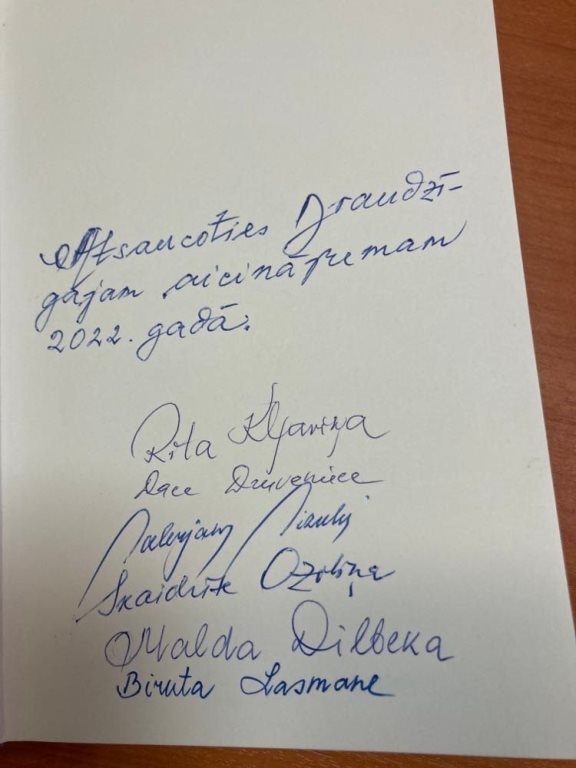 Atsaucoties Draudzī-
gajam aicinājumam
2022. gadā:
Rita Kļaviņa
Dace Dzirvenicce
Skaidrīte Ozoliņa
Malda Dilbeka
Biruta Lasmane